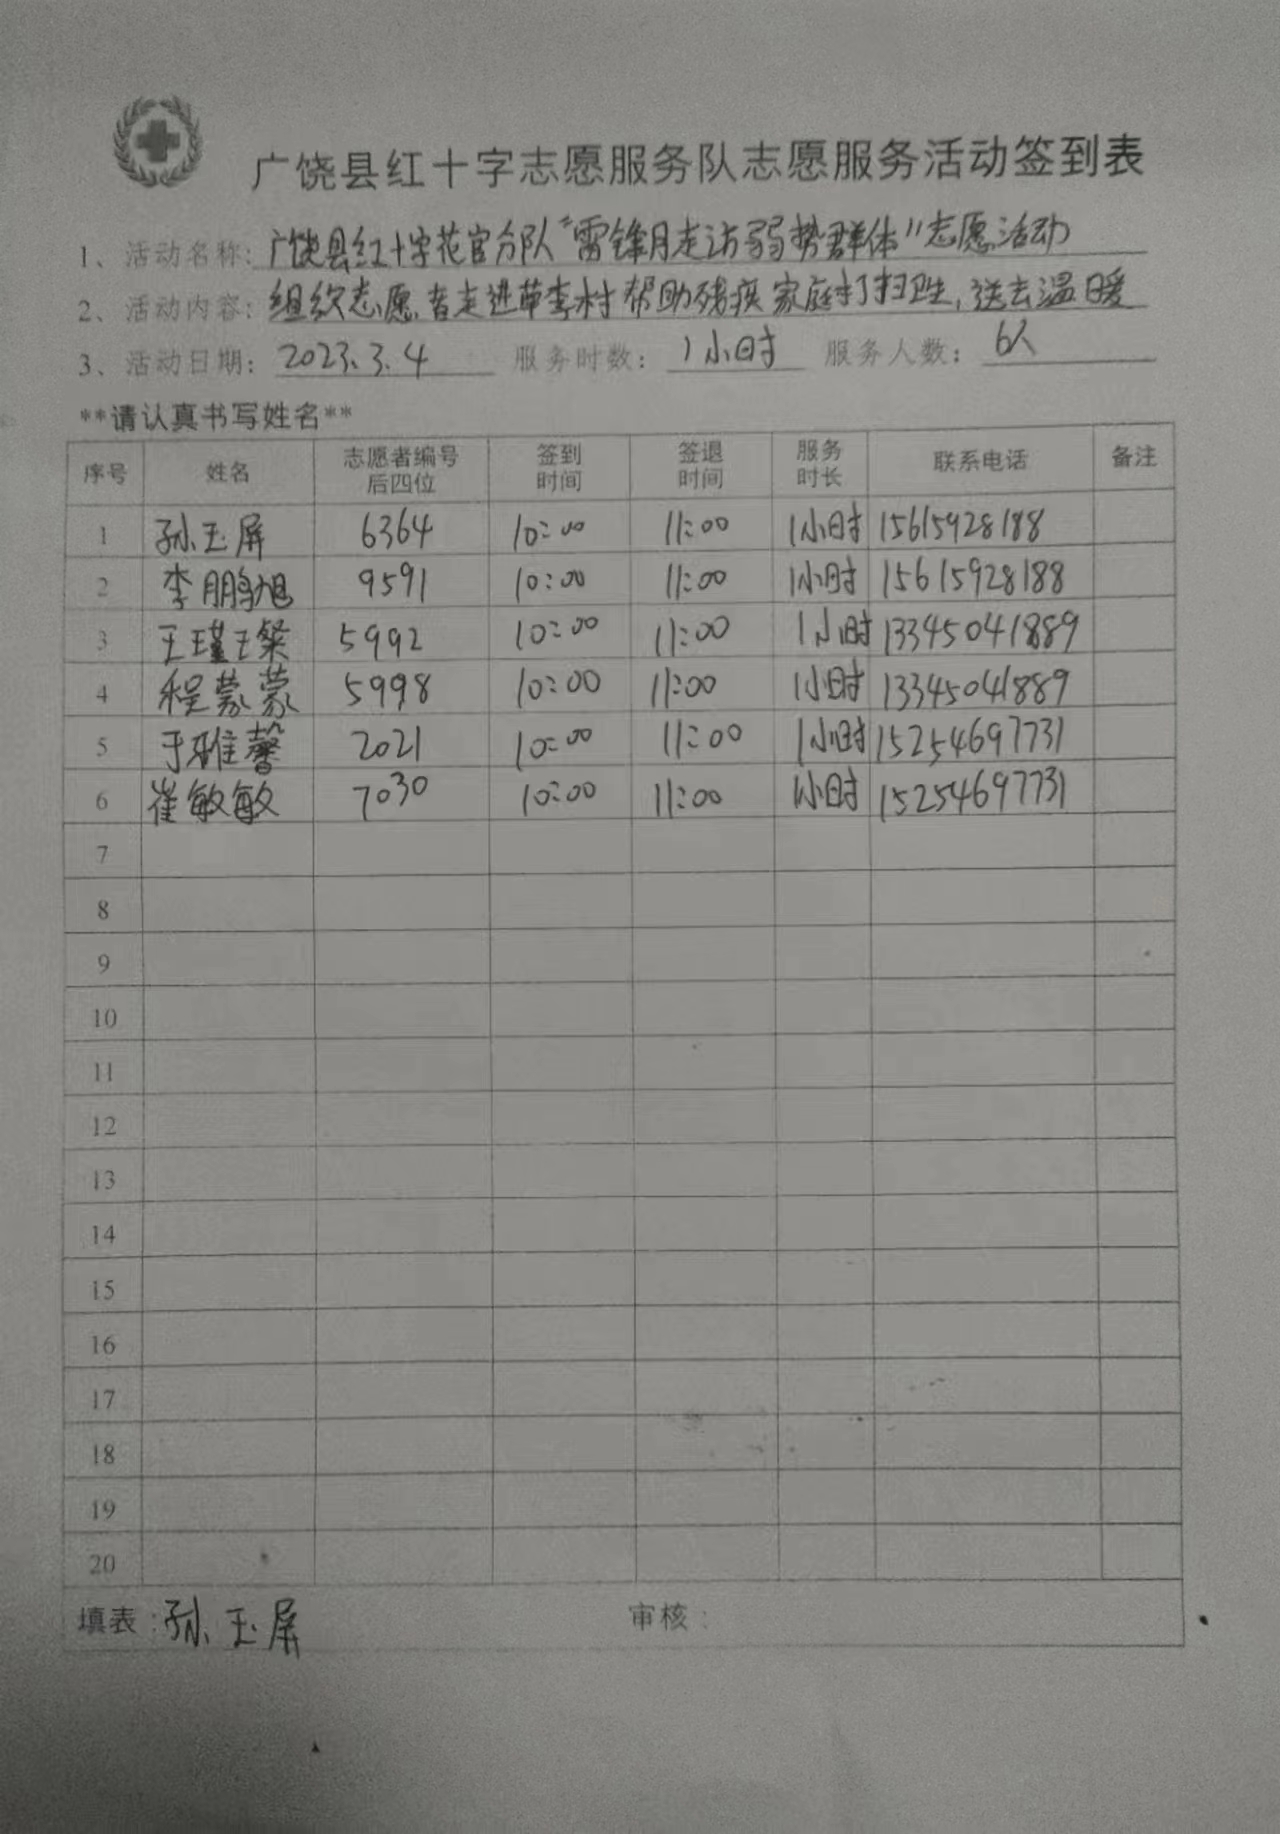 广饶县红十字志愿服务队志愿服务活动签到表
1、活动名称：广饶县红十字花官分队"雷锋月走访弱势群体"志愿活动
2、活动内容：组织志愿者走进草李村帮助残疾家庭打扫卫生，送去温暖
3、活动日期：2023.3.4 服务时数：1小时 服务人数：6人
**请认真书写姓名**
序号 姓名 志愿者编号后四位 签到时间 签退时间 服务时长 联系电话 备注
1 孙玉屏 6364 10:00 11:00 1小时 15615928188
2 李鹏旭 9591 10:00 11:00 1小时 15615928188
3 王瑾璨 5992 10:00 11:00 1小时 13345041889
4 程蒙蒙 5998 10:00 11:00 1小时 13345041889
5 于雅馨 2021 10:00 11:00 1小时 15254697731
6 崔敏敏 7030 10:00 11:00 1小时 15254697731
7
8
9
10
11
12
13
14
15
16
17
18
19
20
填表：孙玉屏 审核：